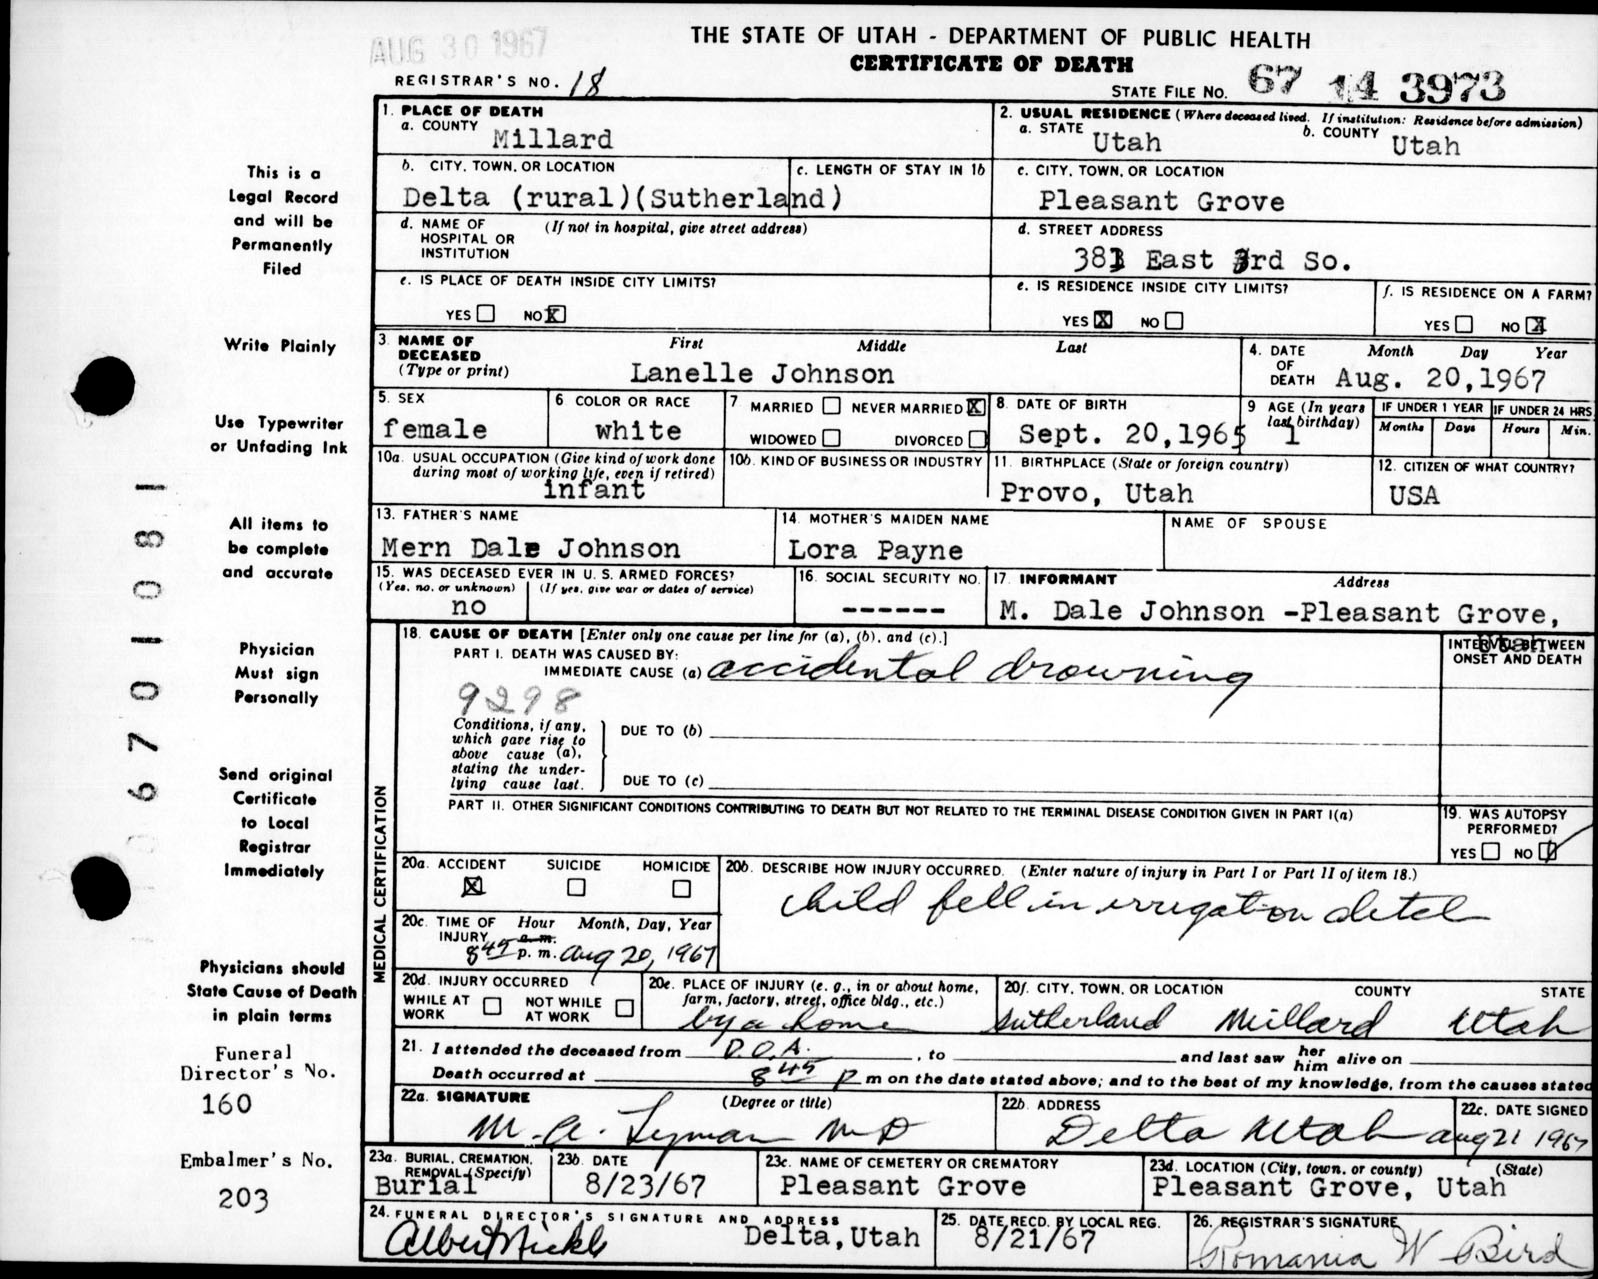 AUG 30 1967
THE STATE OF UTAH - DEPARTMENT OF PUBLIC HEALTH
CERTIFICATE OF DEATH
REGISTRAR'S NO. 18
STATE FILE NO. 67 14 3973
1. PLACE OF DEATH
a. COUNTY Millard
2. USUAL RESIDENCE (Where deceased lived. If institution: Residence before admission)
a. STATE Utah b. COUNTY Utah
b. CITY, TOWN, OR LOCATION c. LENGTH OF STAY IN 1b
Delta (rural)(Sutherland)
c. CITY, TOWN, OR LOCATION
Pleasant Grove
d. NAME OF HOSPITAL OR INSTITUTION (If not in hospital, give street address)
d. STREET ADDRESS
381 East 3rd So.
e. IS PLACE OF DEATH INSIDE CITY LIMITS?
YES NO X
e. IS RESIDENCE INSIDE CITY LIMITS?
YES X NO
f. IS RESIDENCE ON A FARM?
YES NO X
3. NAME OF DECEASED (Type or print) First Middle Last
Lanelle Johnson
4. DATE OF DEATH Month Day Year
Aug. 20,1967
5. SEX
female
6 COLOR OR RACE
white
7 MARRIED NEVER MARRIED X
WIDOWED DIVORCED
8. DATE OF BIRTH
Sept. 20,1965
9 AGE (In years last birthday)
1
IF UNDER 1 YEAR IF UNDER 24 HRS.
Months Days Hours Min.
10a. USUAL OCCUPATION (Give kind of work done during most of working life, even if retired)
infant
10b. KIND OF BUSINESS OR INDUSTRY
11. BIRTHPLACE (State or foreign country)
Provo, Utah
12. CITIZEN OF WHAT COUNTRY?
USA
13. FATHER'S NAME
Mern Dale Johnson
14. MOTHER'S MAIDEN NAME
Lora Payne
NAME OF SPOUSE
15. WAS DECEASED EVER IN U. S. ARMED FORCES?
(Yes, no, or unknown) (If yes, give war or dates of service)
no
16. SOCIAL SECURITY NO.
------
17. INFORMANT Address
M. Dale Johnson -Pleasant Grove,
Utah
MEDICAL CERTIFICATION
18. CAUSE OF DEATH [Enter only one cause per line for (a), (b), and (c).]
INTERVAL BETWEEN ONSET AND DEATH
PART I. DEATH WAS CAUSED BY:
IMMEDIATE CAUSE (a) accidental drowning
9298
Conditions, if any,
which gave rise to
above cause (a),
stating the under-
lying cause last.
DUE TO (b)
DUE TO (c)
PART II. OTHER SIGNIFICANT CONDITIONS CONTRIBUTING TO DEATH BUT NOT RELATED TO THE TERMINAL DISEASE CONDITION GIVEN IN PART I(a)
19. WAS AUTOPSY PERFORMED?
YES NO
20a. ACCIDENT SUICIDE HOMICIDE
X
20b. DESCRIBE HOW INJURY OCCURRED. (Enter nature of injury in Part I or Part II of item 18.)
child fell in irrigation ditch
20c. TIME OF INJURY Hour Month, Day, Year
a.m.
8 45 p.m. Aug 20, 1967
20d. INJURY OCCURRED
WHILE AT WORK NOT WHILE AT WORK
20e. PLACE OF INJURY (e. g., in or about home, farm, factory, street, office bldg., etc.)
by a home
20f. CITY, TOWN, OR LOCATION COUNTY STATE
Sutherland Millard Utah
21. I attended the deceased from D.O.A. , to and last saw her him alive on
Death occurred at 8 45 P m on the date stated above; and to the best of my knowledge, from the causes stated
22a. SIGNATURE (Degree or title)
M. A. Lyman MD
22b. ADDRESS
Delta Utah
22c. DATE SIGNED
Aug 21 1967
23a. BURIAL, CREMATION, REMOVAL (Specify)
Burial
23b. DATE
8/23/67
23c. NAME OF CEMETERY OR CREMATORY
Pleasant Grove
23d. LOCATION (City, town, or county) (State)
Pleasant Grove, Utah
24. FUNERAL DIRECTOR'S SIGNATURE AND ADDRESS
Delta,Utah
25. DATE RECD. BY LOCAL REG.
8/21/67
26. REGISTRAR'S SIGNATURE
Romania W Bird
This is a
Legal Record
and will be
Permanently
Filed
Write Plainly
Use Typewriter
or Unfading Ink
All items to
be complete
and accurate
Physician
Must sign
Personally
Send original
Certificate
to Local
Registrar
Immediately
Physicians should
State Cause of Death
in plain terms
Funeral
Director's No.
160
Embalmer's No.
203
0 6 7 0 1 0 8 1